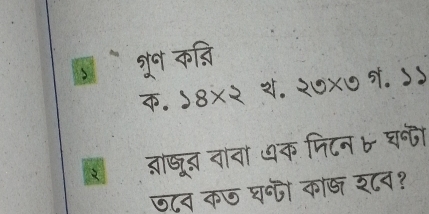 ১ গুণ করি
ক. ১৪×২ খ. ২৩×৩ গ. ১১
২ রাজুর বাবা এক দিনে ৮ ঘণ্টা
তবে কত ঘণ্টা কাজ হবে?